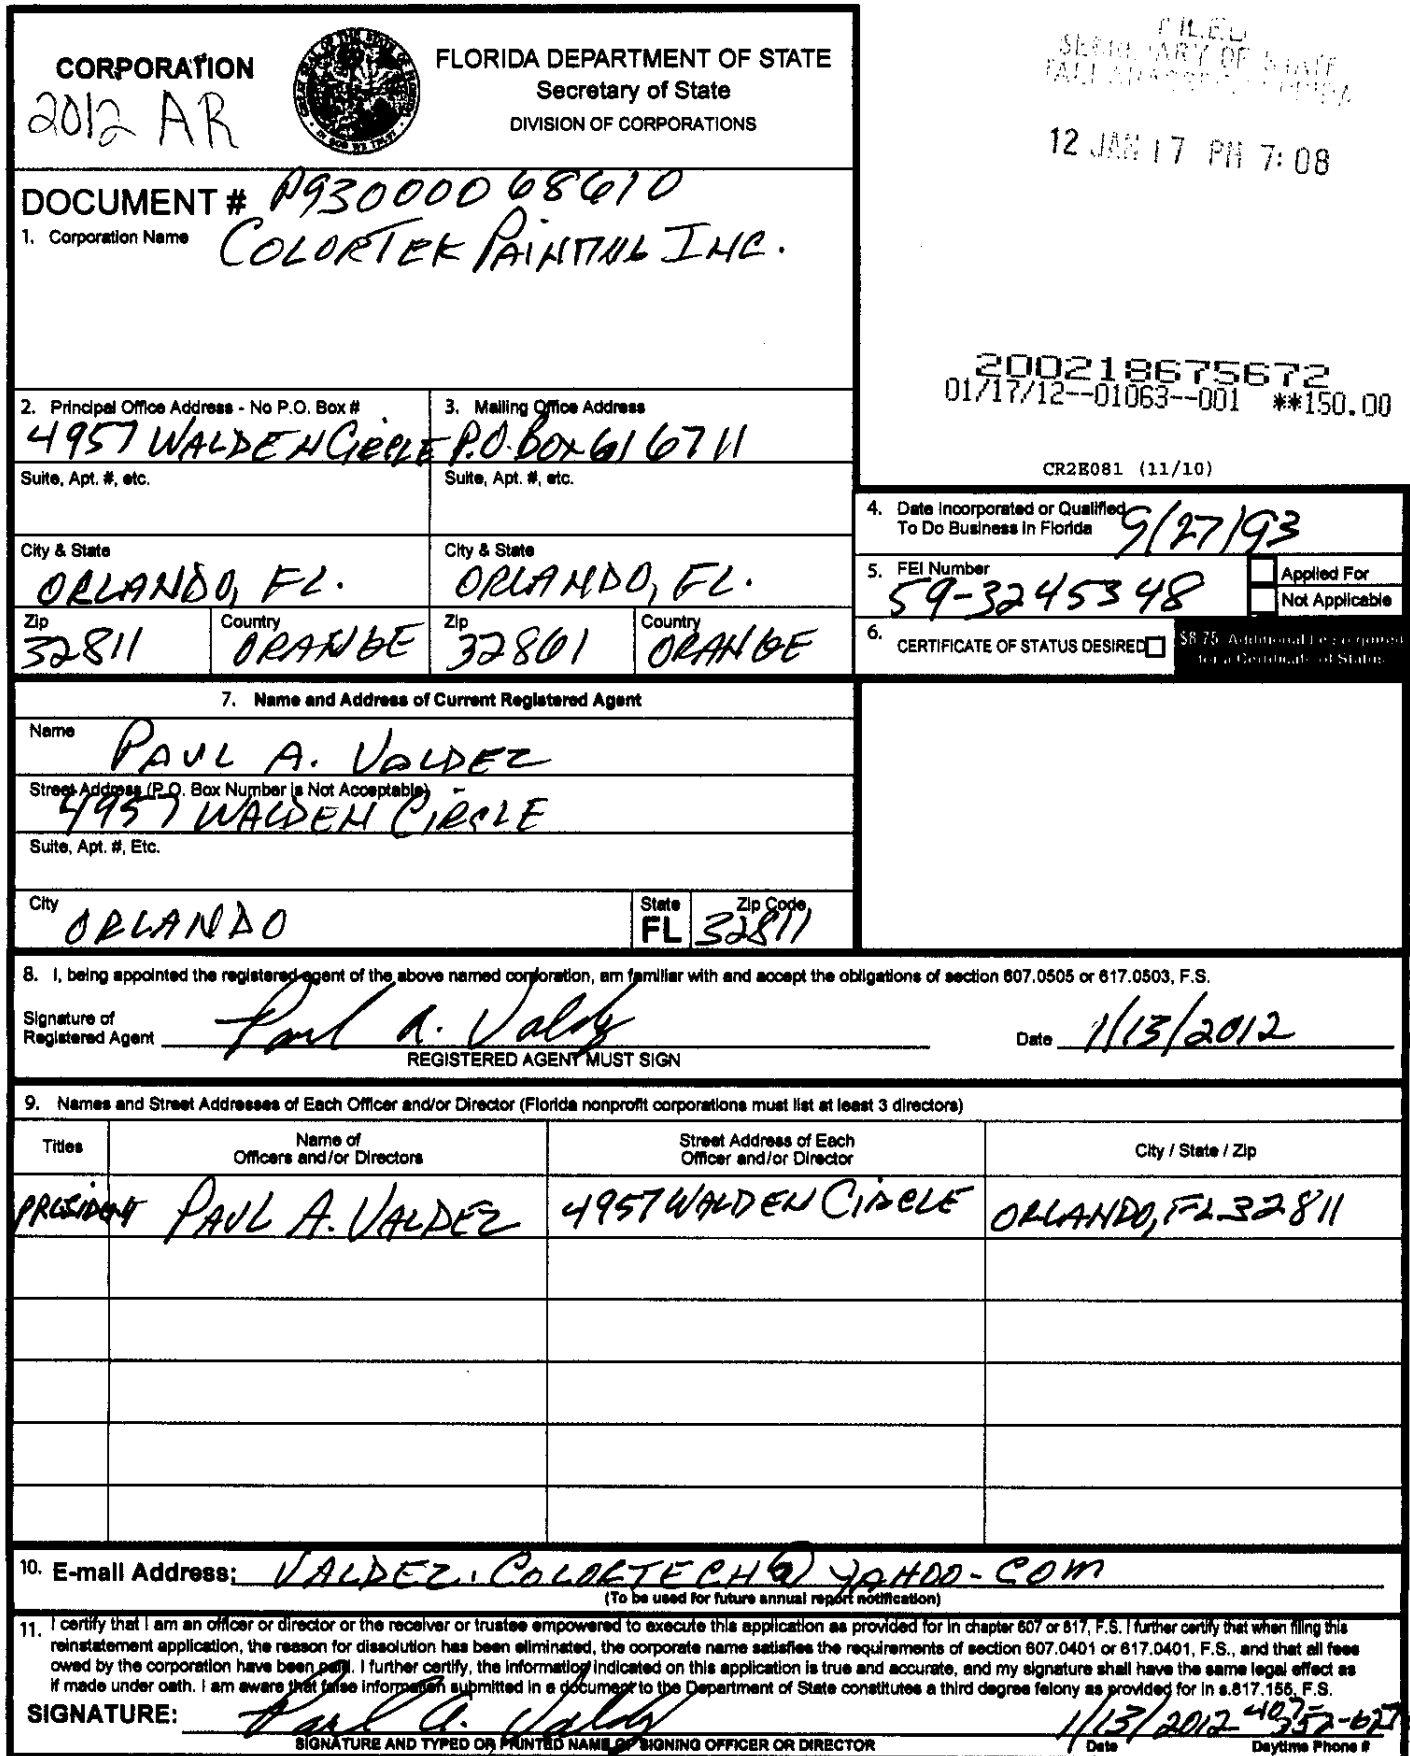 CORPORATION
2012 AR
FLORIDA DEPARTMENT OF STATE
Secretary of State
DIVISION OF CORPORATIONS
FILED
SECRETARY OF STATE
TALLAHASSEE FLORIDA
12 JAN 17 PM 7:08
DOCUMENT # P93000068610
1. Corporation Name COLORTEK PAINTING INC.
200218675672
01/17/12--01063--001 **150.00
CR2E081 (11/10)
2. Principal Office Address - No P.O. Box #
4957 WALDEN CIRCLE
Suite, Apt. #, etc.
City & State
ORLANDO, FL.
Zip
32811
Country
ORANGE
3. Mailing Office Address
P.O. BOX 616711
Suite, Apt. #, etc.
City & State
ORLANDO, FL.
Zip
32861
Country
ORANGE
4. Date Incorporated or Qualified
To Do Business in Florida 9/27/93
5. FEI Number
59-3245348
Applied For
Not Applicable
6. CERTIFICATE OF STATUS DESIRED
$8.75 Additional Fee required
for a Certificate of Status
7. Name and Address of Current Registered Agent
Name
PAUL A. VALDEZ
Street Address (P.O. Box Number is Not Acceptable)
4957 WALDEN CIRCLE
Suite, Apt. #, Etc.
City
ORLANDO
State
FL
Zip Code
32811
8. I, being appointed the registered agent of the above named corporation, am familiar with and accept the obligations of section 607.0505 or 617.0503, F.S.
Signature of
Registered Agent Paul A. Valdez
Date 1/13/2012
REGISTERED AGENT MUST SIGN
9. Names and Street Addresses of Each Officer and/or Director (Florida nonprofit corporations must list at least 3 directors)
Titles
Name of
Officers and/or Directors
Street Address of Each
Officer and/or Director
City / State / Zip
PRESIDENT PAUL A. VALDEZ 4957 WALDEN CIRCLE ORLANDO, FL 32811
10. E-mail Address: VALDEZ.COLORTECH@YAHOO.COM
(To be used for future annual report notification)
11. I certify that I am an officer or director or the receiver or trustee empowered to execute this application as provided for in chapter 607 or 617, F.S. I further certify that when filing this
reinstatement application, the reason for dissolution has been eliminated, the corporate name satisfies the requirements of section 607.0401 or 617.0401, F.S., and that all fees
owed by the corporation have been paid. I further certify, the information indicated on this application is true and accurate, and my signature shall have the same legal effect as
if made under oath. I am aware that false information submitted in a document to the Department of State constitutes a third degree felony as provided for in s.817.155, F.S.
SIGNATURE: Paul A. Valdez 1/13/2012
SIGNATURE AND TYPED OR PRINTED NAME OF SIGNING OFFICER OR DIRECTOR
Date
Daytime Phone #